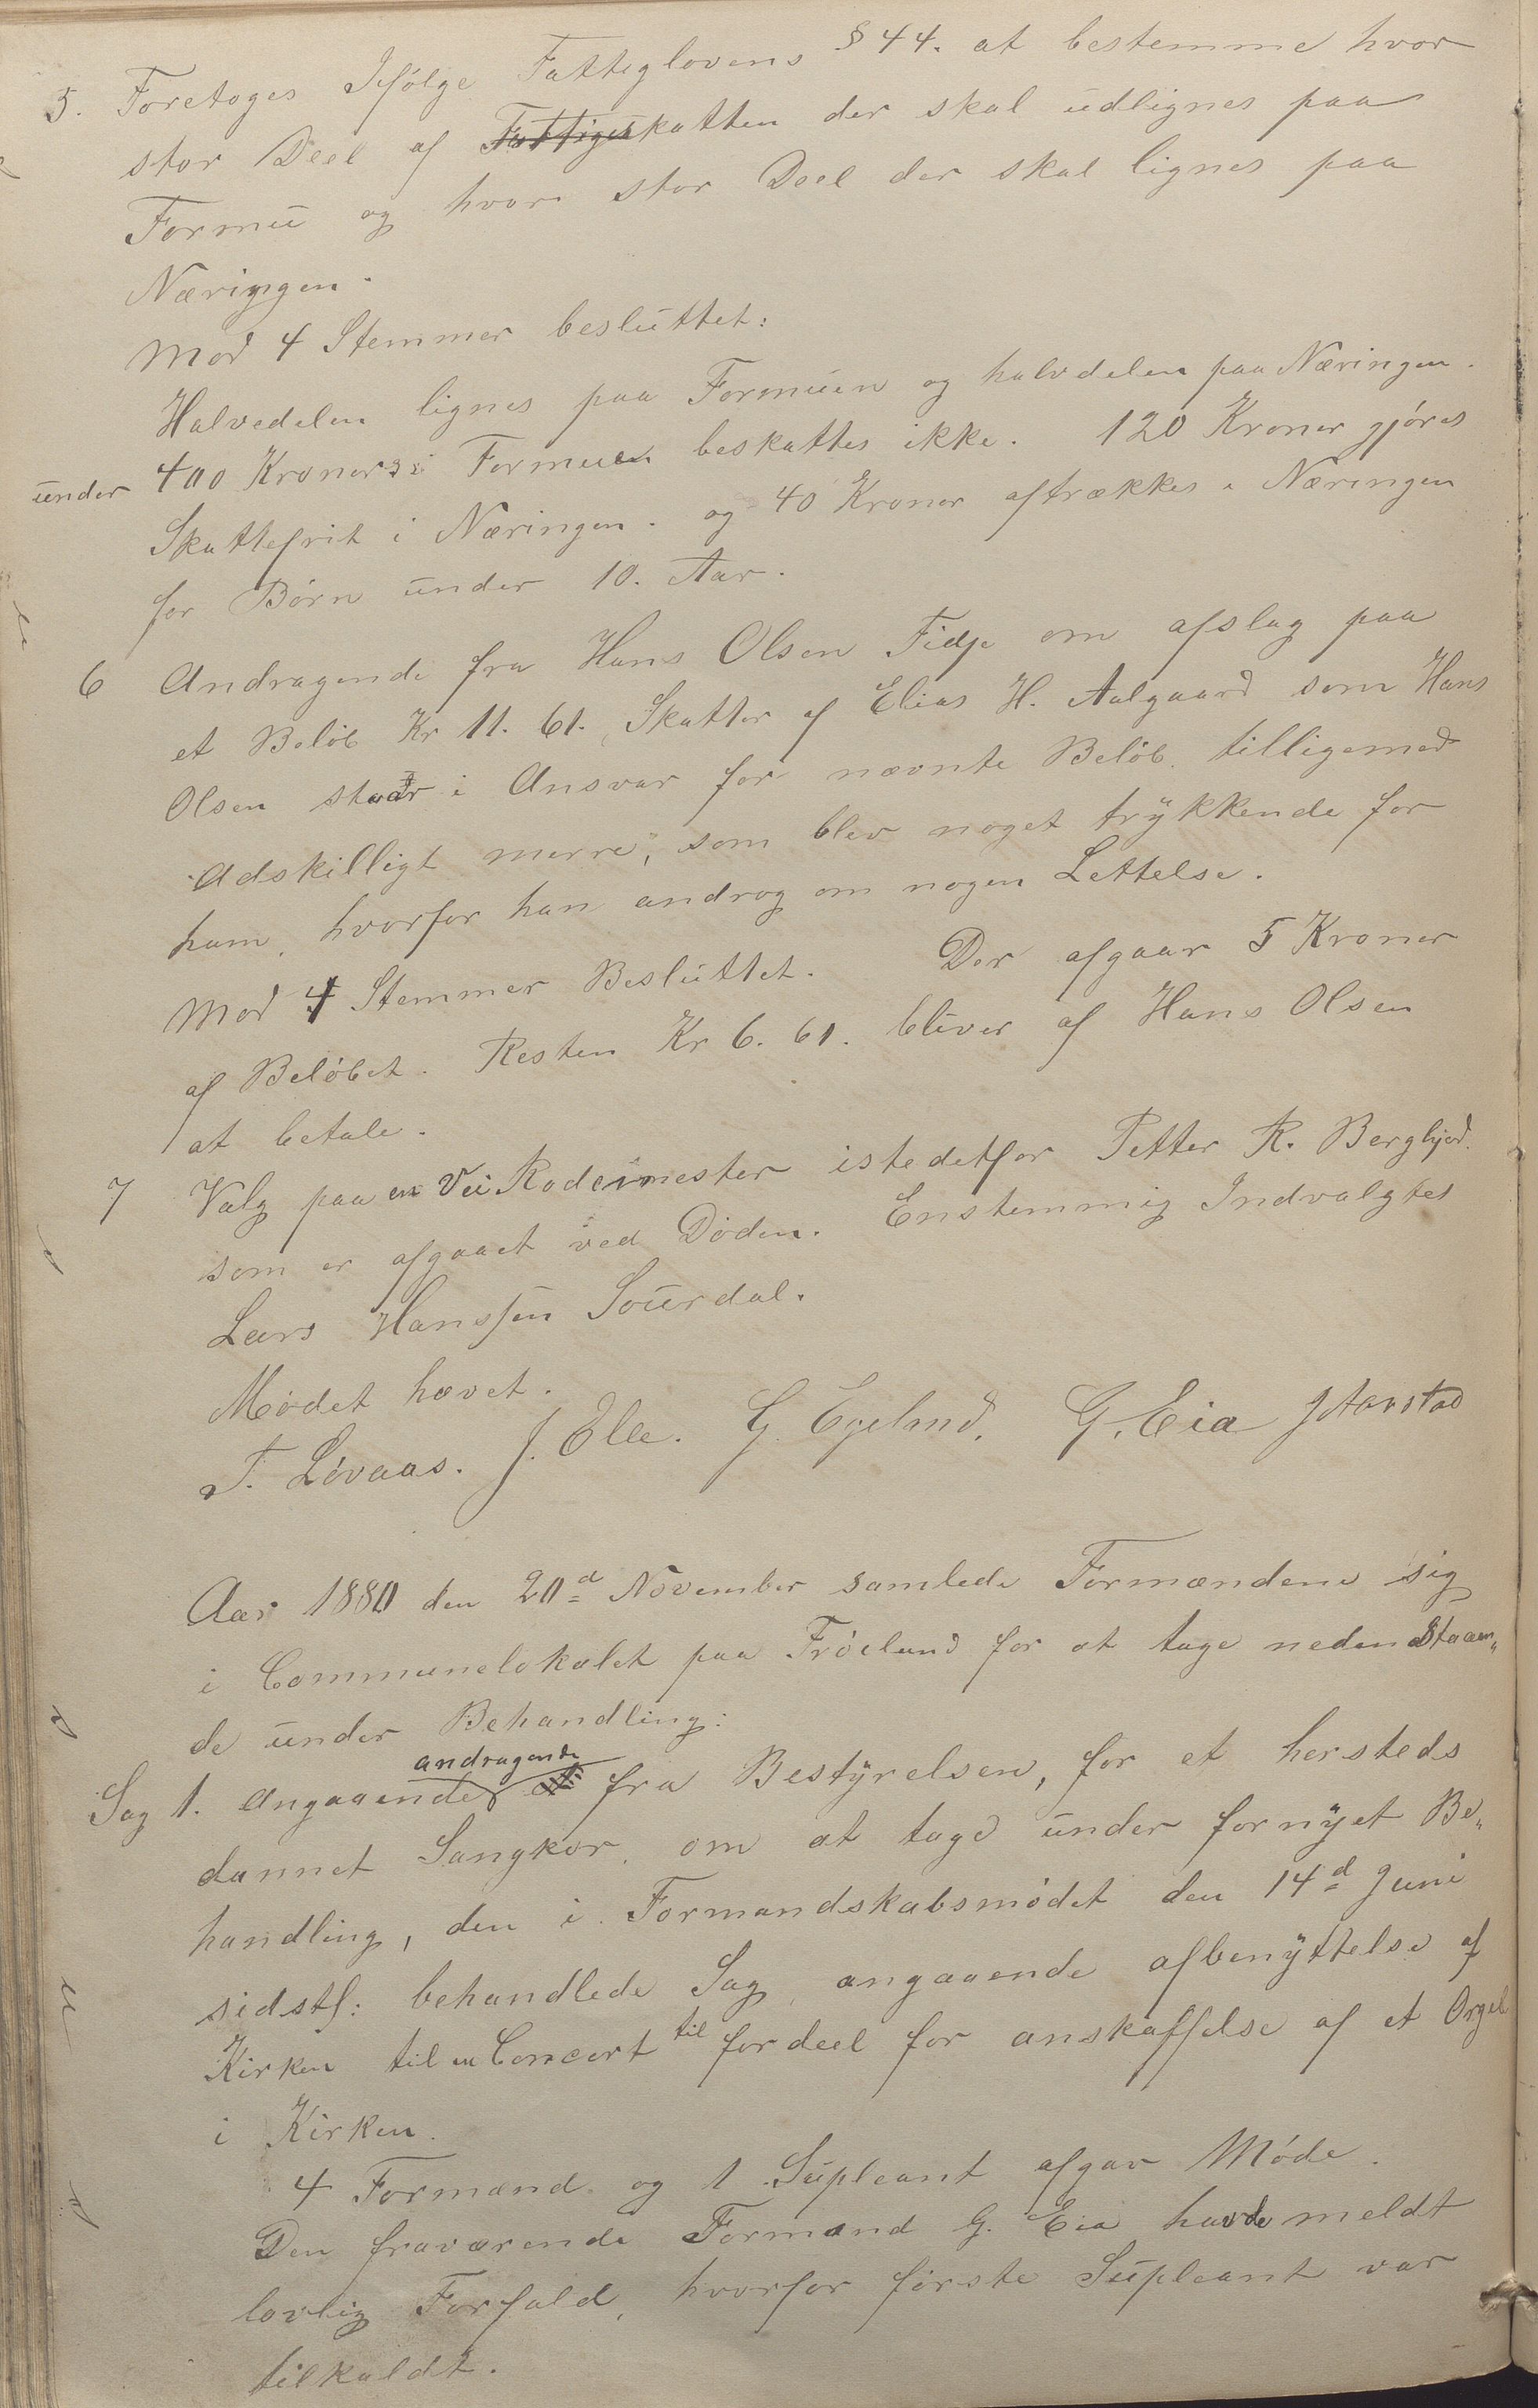 5. Foretoges Ifølge Fattiglovens § 44. at bestemme hvor
stor Deel af Fattigeskatten der skal udlignes paa
Formu og hvor stor Deel der skal lignes paa
Næringen.
Mod 4 Stemmer besluttet:
Halvedelen lignes paa Formuen og halvdelen paa Næringen.
under 400 Kroner i Formuen beskattes ikke. 120 Kroner gjøres
Skattefrit i Næringen. og 40 Kroner aftrækkes i Næringen
for Børn under 10. Aar.
6 Andragende fra Hans Olsen Fidje om afslag paa
et Beløb Kr 11. 61. Skatter af Elias H. Aalgaard som Hans
Olsen staar i Ansvar for nævnte Beløb. tilligemed
Adskilligt merre, som blev noget trykkende for
ham, hvorfor han androg om nogen Lettelse.
Mod 4 Stemmer Besluttet. Der afgaar 5 Kroner
af Beløbet. Resten Kr 6. 61. bliver af Hans Olsen
at betale.
7 Valg paa en Vei Rodemester istedetfor Petter R. Bergljod
som er afgaaet ved Døden. Enstemmig Indvalgtes
Lars Hanssen Sourdal.
Mødet hævet.
T. Løvaas. J. Elle. G. Egeland. G. Eia J Aarstad
Aar 1880 den 20d November samlede Formændene sig
i Communelokalet paa Frøeland for at tage nedenstaaen„
de under Behandling:
andragende
Sag 1. Angaaende fra Bestyrelsen, for et hersteds
dannet Sangkor, om at tage under fornyet Be„
handling, den i Formandskabsmødet den 14d Juni
sidstl: behandlede Sag, angaaende afbenyttelse af
Kirken til en Concert til fordeel for anskaffelse af et Orgel
i Kirken.
4 Formænd og 1 Supleant afgav Møde.
Den fraværende Formand G. Eia havde meldt
lovlig Forfald, hvorfor første Supleant var
tilkaldt.